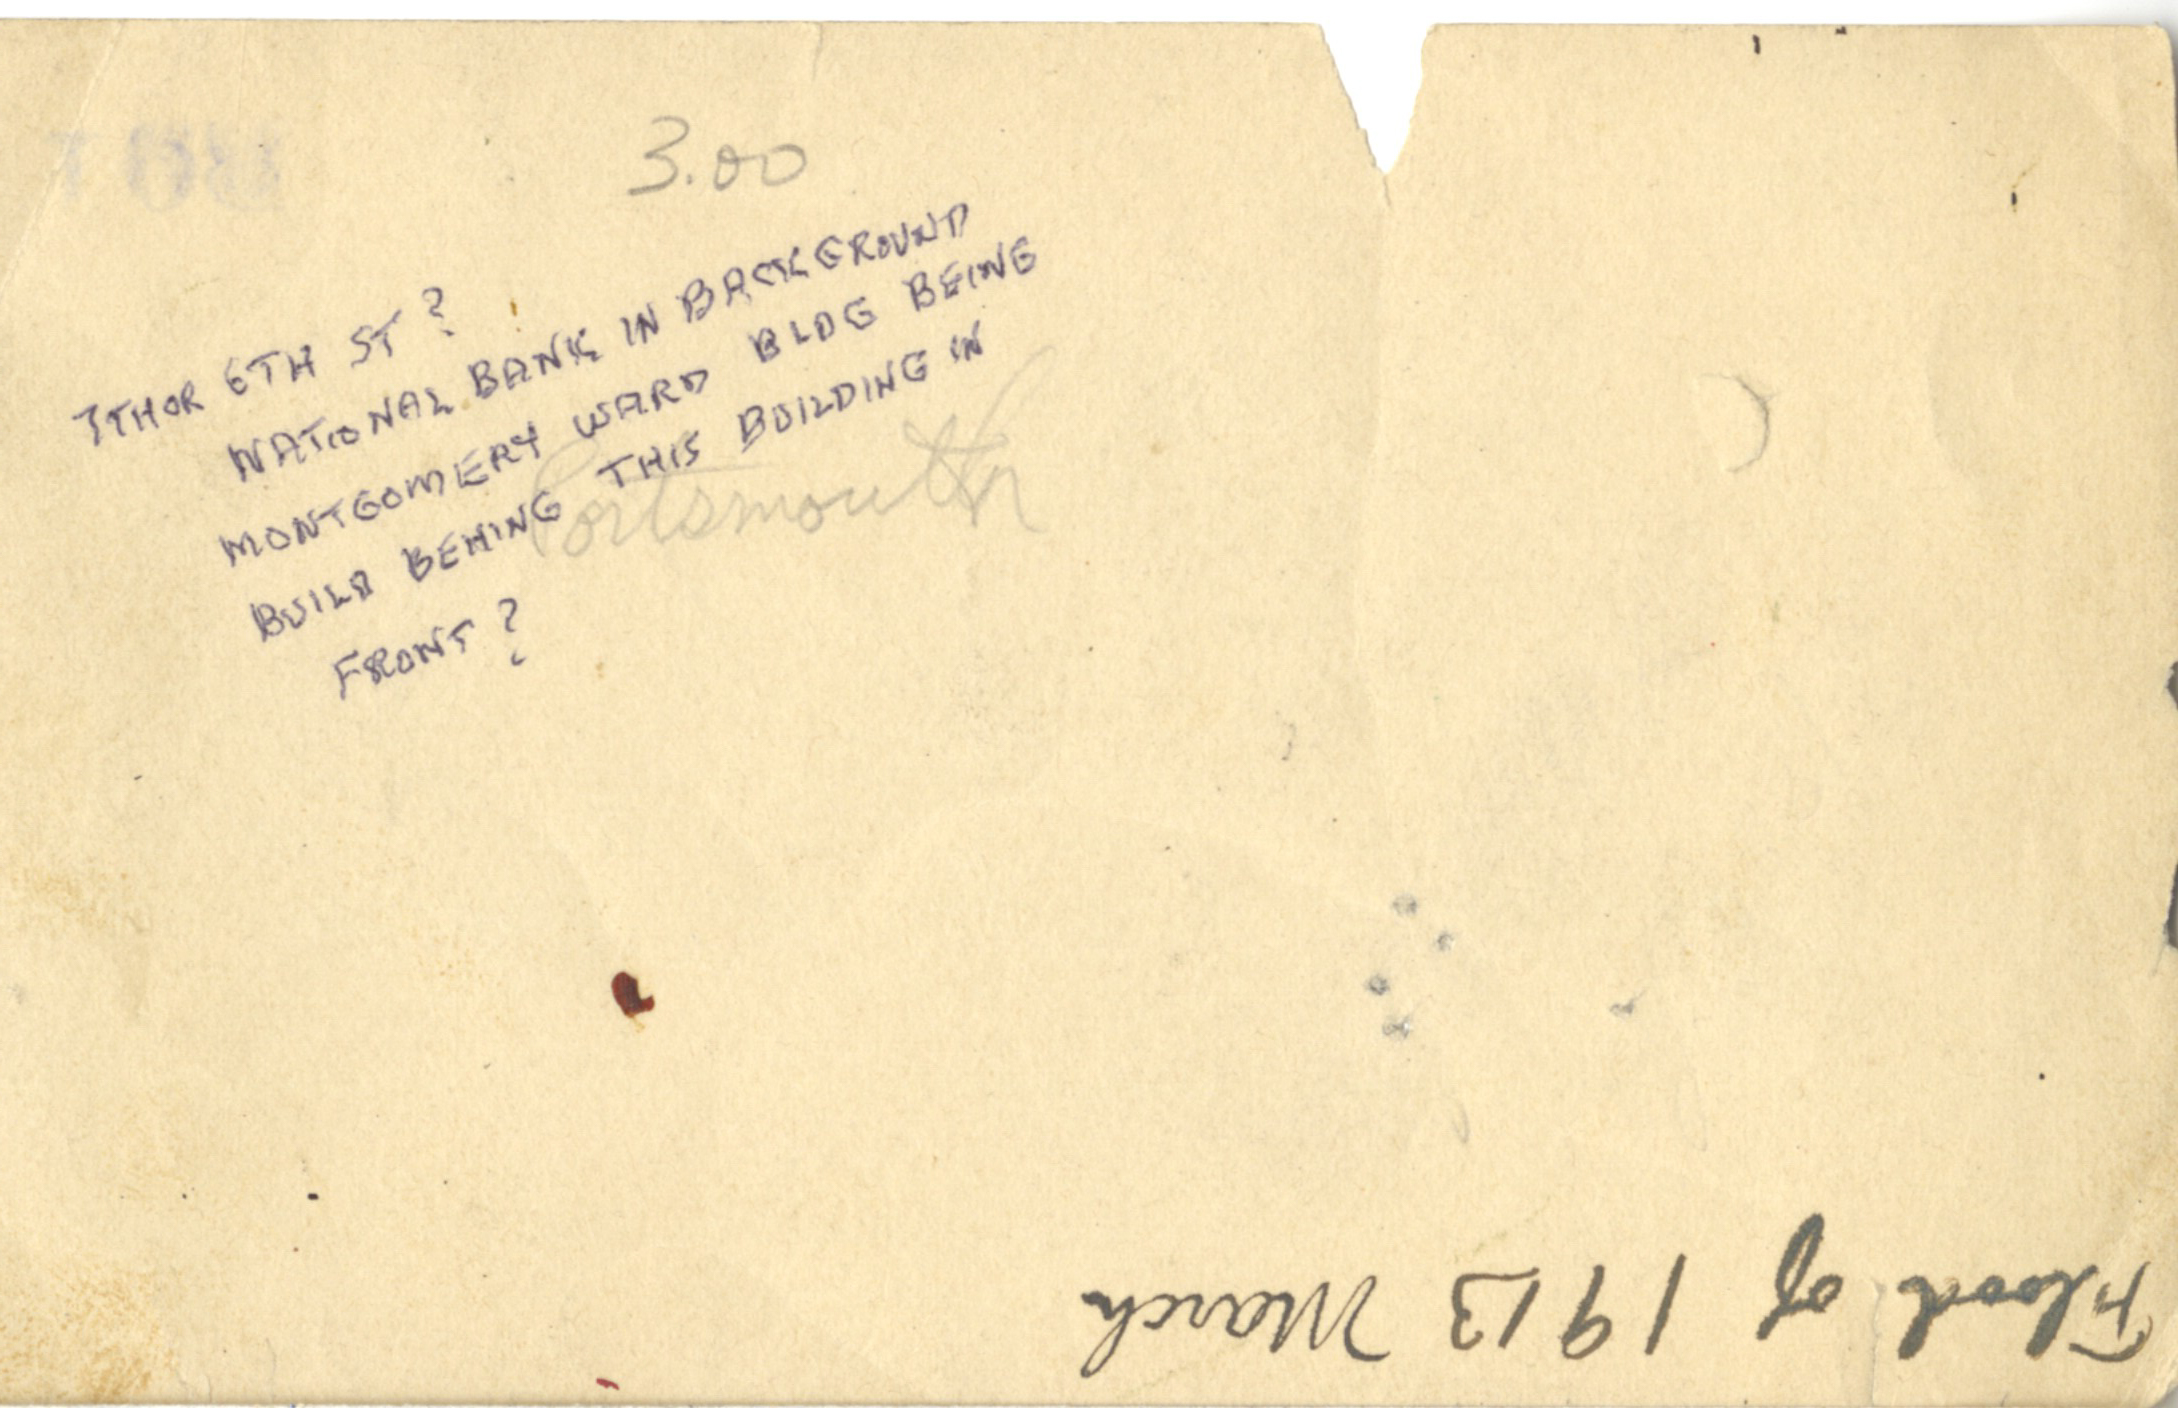 3.00
7TH OR 6TH ST ?
NATIONAL BANK IN BACKGROUND
MONTGOMERY WARD BLDG BEING
BUILD BEHING THIS BUILDING IN
FRONT ?
Portsmouth
Flood of 1913 March